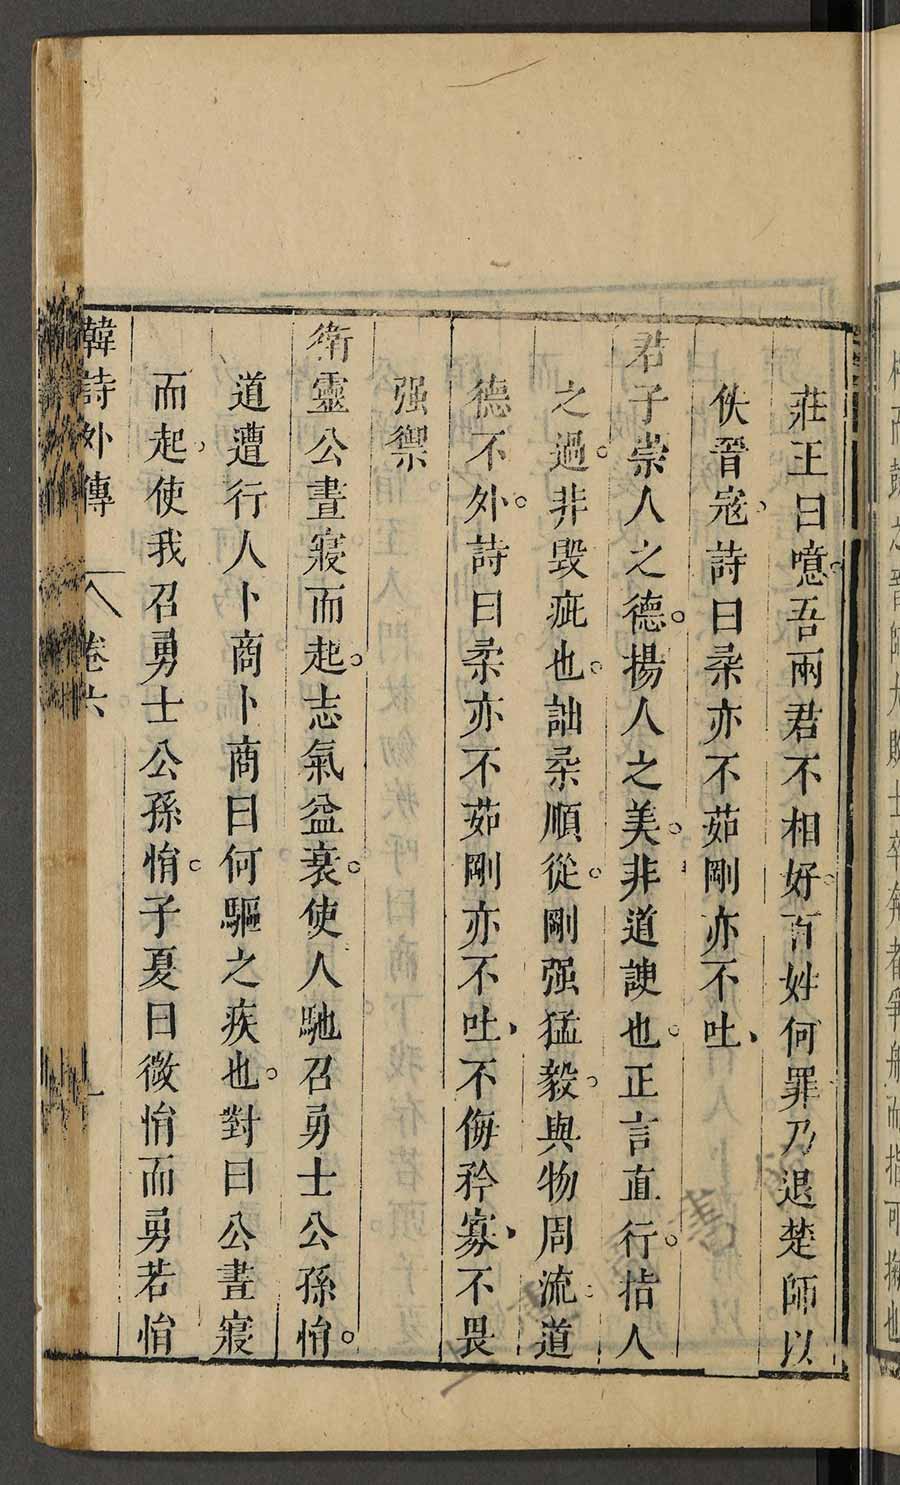 莊王曰噫吾兩君不相好百姓何罪乃退楚師以
佚晉寇詩曰柔亦不茹剛亦不吐
君子崇人之德揚人之美非道諛也正言直行指人
之過非毀疵也詘柔順從剛强猛毅與物周流道
德不外詩曰柔亦不茹剛亦不吐不侮矜寡不畏
强禦
衛靈公晝寢而起志氣益衰使人馳召勇士公孫悁
道遭行人卜商卜商曰何驅之疾也對曰公晝寢
而起使我召勇士公孫悁子夏曰微悁而勇若悁
韓詩外傳 卷六